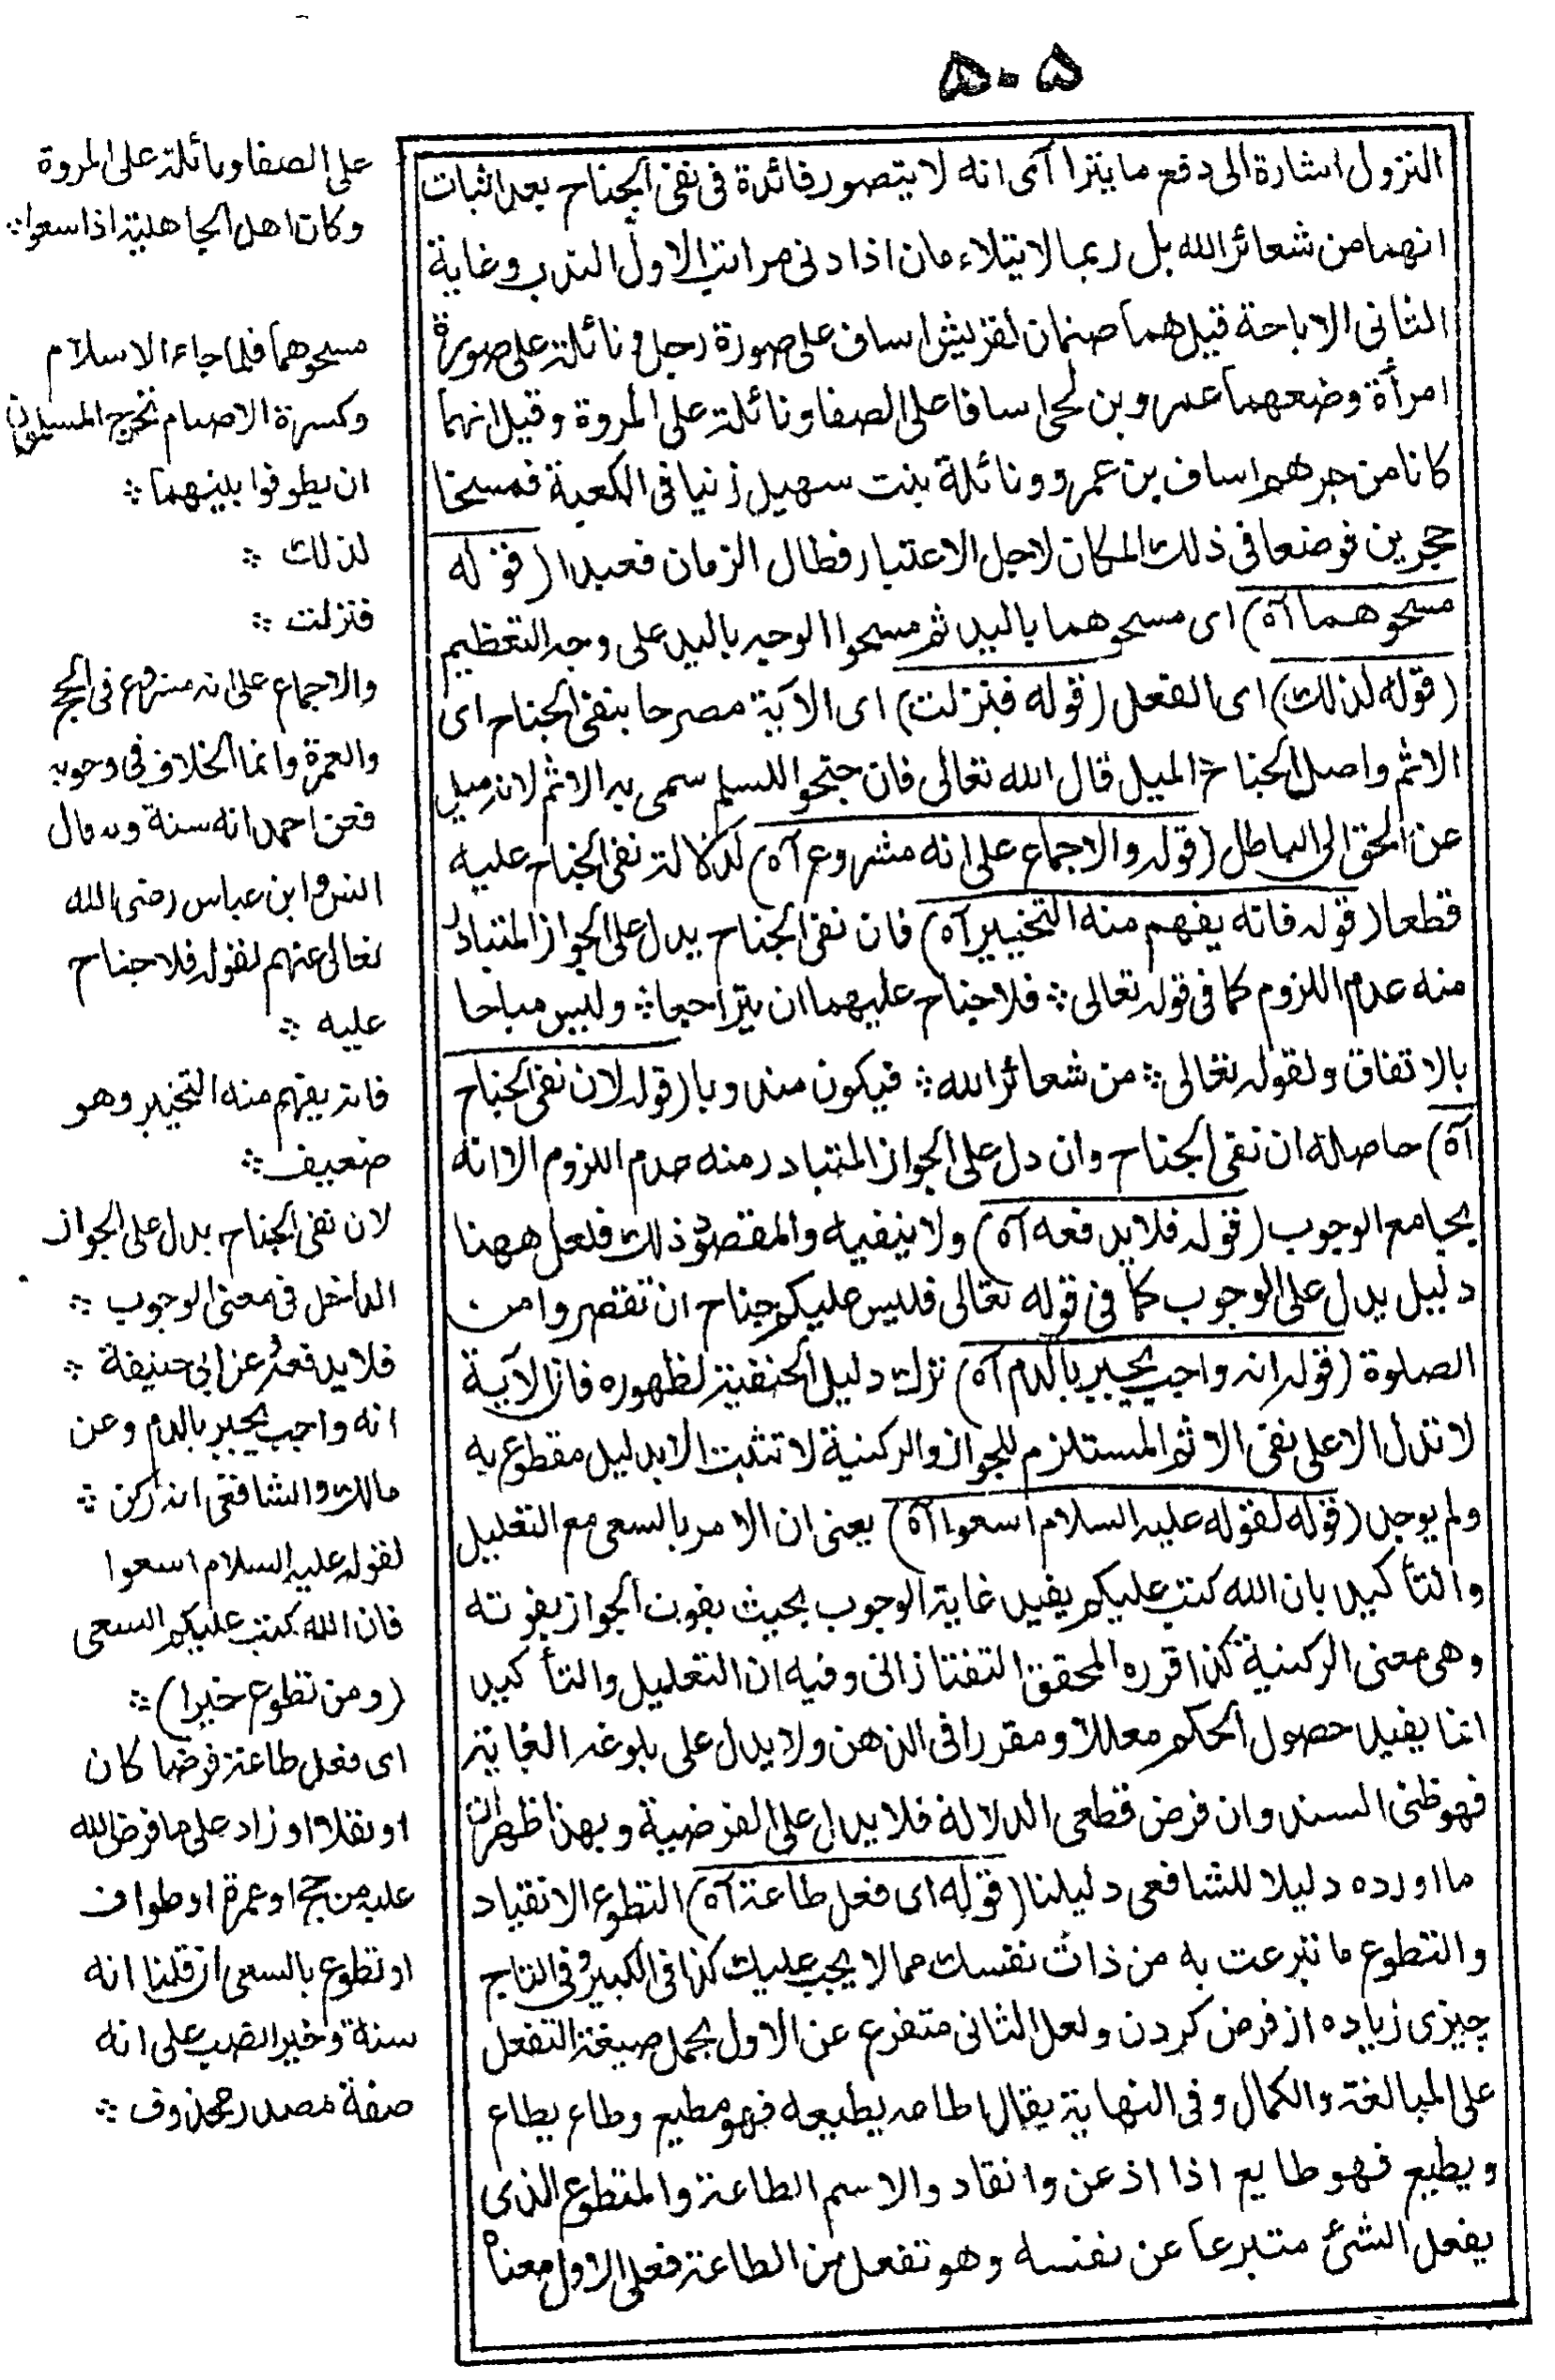 ٥٠٥
النزول اشارة الى دفع ما يترا آى انه لا يتصور فائدة فى نفى الجناح بعد اثبات
انهما من شعائر الله بل ربما لا يتلاءمان اذ ادنى مراتب الاول الندب وغاية
الثانى الاباحة قيل هما صنمان لقريش اساف على صورة رجل و نائلة على صورة
امرأة وضعهما عمرو بن لحى اسافا على الصفا ونائلة على المروة وقيل انهما
كانا من جرهم اساف بن عمرو ونائلة بنت سهيل زنيا فى الكعبة فمسخا
حجرين فوضعا فى ذلك المكان لاجل الاعتبار فطال الزمان فعبدا (قوله
مسحوهما آه) اى مسحوهما باليد ثم مسحوا الوجه باليد على وجه التعظيم
(قوله لذلك) اى الفعل (قوله فنزلت) اى الآية مصرحا بنفى الجناح اى
الاثم واصل الجناح الميل قال الله تعالى فان جنحوا للسلم سمى به الاثم لانه ميل
عن الحق الى الباطل (قوله والاجماع على انه مشروع آه) لدلالة نفى الجناح عليه
قطعا (قوله فانه يفهم منه التخيير آه) فان نفى الجناح يدل على الجواز المتبادر
منه عدم اللزوم كما فى قوله تعالى ۞ فلا جناح عليهما ان يتراجعا ۞ وليس مباحا
بالاتفاق ولقوله تعالى ۞ من شعائر الله ۞ فيكون مندوبا (قوله لان نفى الجناح
آه) حاصله ان نفى الجناح وان دل على الجواز المتبادر منه عدم اللزوم الا انه
يجامع الوجوب (قوله فلا يدفعه آه) ولا ينفيه والمقصود ذلك فلعل ههنا
دليل يدل على الوجوب كما فى قوله تعالى فليس عليكم جناح ان تقصروا من
الصلوة (قوله انه واجب يجبر بالدم آه) ترك دليل الحنفية لظهوره فان الآية
لا تدل الا على نفى الاثم المستلزم للجواز والركنية لا تثبت الا بدليل مقطوع به
ولم يوجد (قوله لقوله عليه السلام اسعوا آه) يعنى ان الامر بالسعى مع التعليل
والتأكيد بان الله كتب عليكم يفيد غاية الوجوب بحيث يفوت الجواز بفوته
وهى معنى الركنية كذا قرره المحقق التفتازانى وفيه ان التعليل والتأكيد
انما يفيد حصول الحكم معللا ومقررا فى الذهن ولا يدل على بلوغه الغاية
فهو ظنى السند وان فرض قطعى الدلالة فلا يدل على الفرضية وبهذا ظهر ان
ما اورده دليلا للشافعى دليلنا (قوله اى فعل طاعة آه) التطوع الانقياد
والتطوع ما تبرعت به من ذات نفسك مما لا يجب عليك كذا فى الكبير وفى التاج
چيزى زياده از فرض كردن ولعل الثانى متفرع عن الاول بحمل صيغة التفعل
على المبالغة والكمال وفى النهاية يقال اطاعه يطيعه فهو مطيع وطاع يطاع
ويطيع فهو طايع اذا اذعن وانقاد والاسم الطاعة والمتطوع الذى
يفعل الشئ متبرعا عن نفسه وهو تفعل من الطاعة فعلى الاول معناه
على الصفا ونائلة على المروة
وكان اهل الجاهلية اذا سعوا ۞
مسحوهما فلما جاء الاسلام
وكسرة الاصنام تحرج المسلمون
ان يطوفوا بينهما ۞
لذلك ۞
فنزلت ۞
والاجماع على انه مشروع فى الحج
والعمرة وانما الخلاف فى وجوبه
فعن احمد انه سنة وبه قال
انس وابن عباس رضى الله
تعالى عنهم لقوله فلا جناح
عليه ۞
فانه يفهم منه التخيير وهو
ضعيف ۞
لان نفى الجناح يدل على الجواز
الداخل فى معنى الوجوب ۞
فلا يدفعه وعن ابى حنيفة ۞
انه واجب يجبر بالدم وعن
مالك والشافعى انه ركن ۞
لقوله عليه السلام اسعوا
فان الله كتب عليكم السعى
(ومن تطوع خيرا) ۞
اى فعل طاعة فرضا كان
او نفلا او زاد على ما فرض الله
عليه من حج او عمرة او طواف
او تطوع بالسعى ان قلنا انه
سنة وخيرا نصب على انه
صفة مصدر محذوف ۞